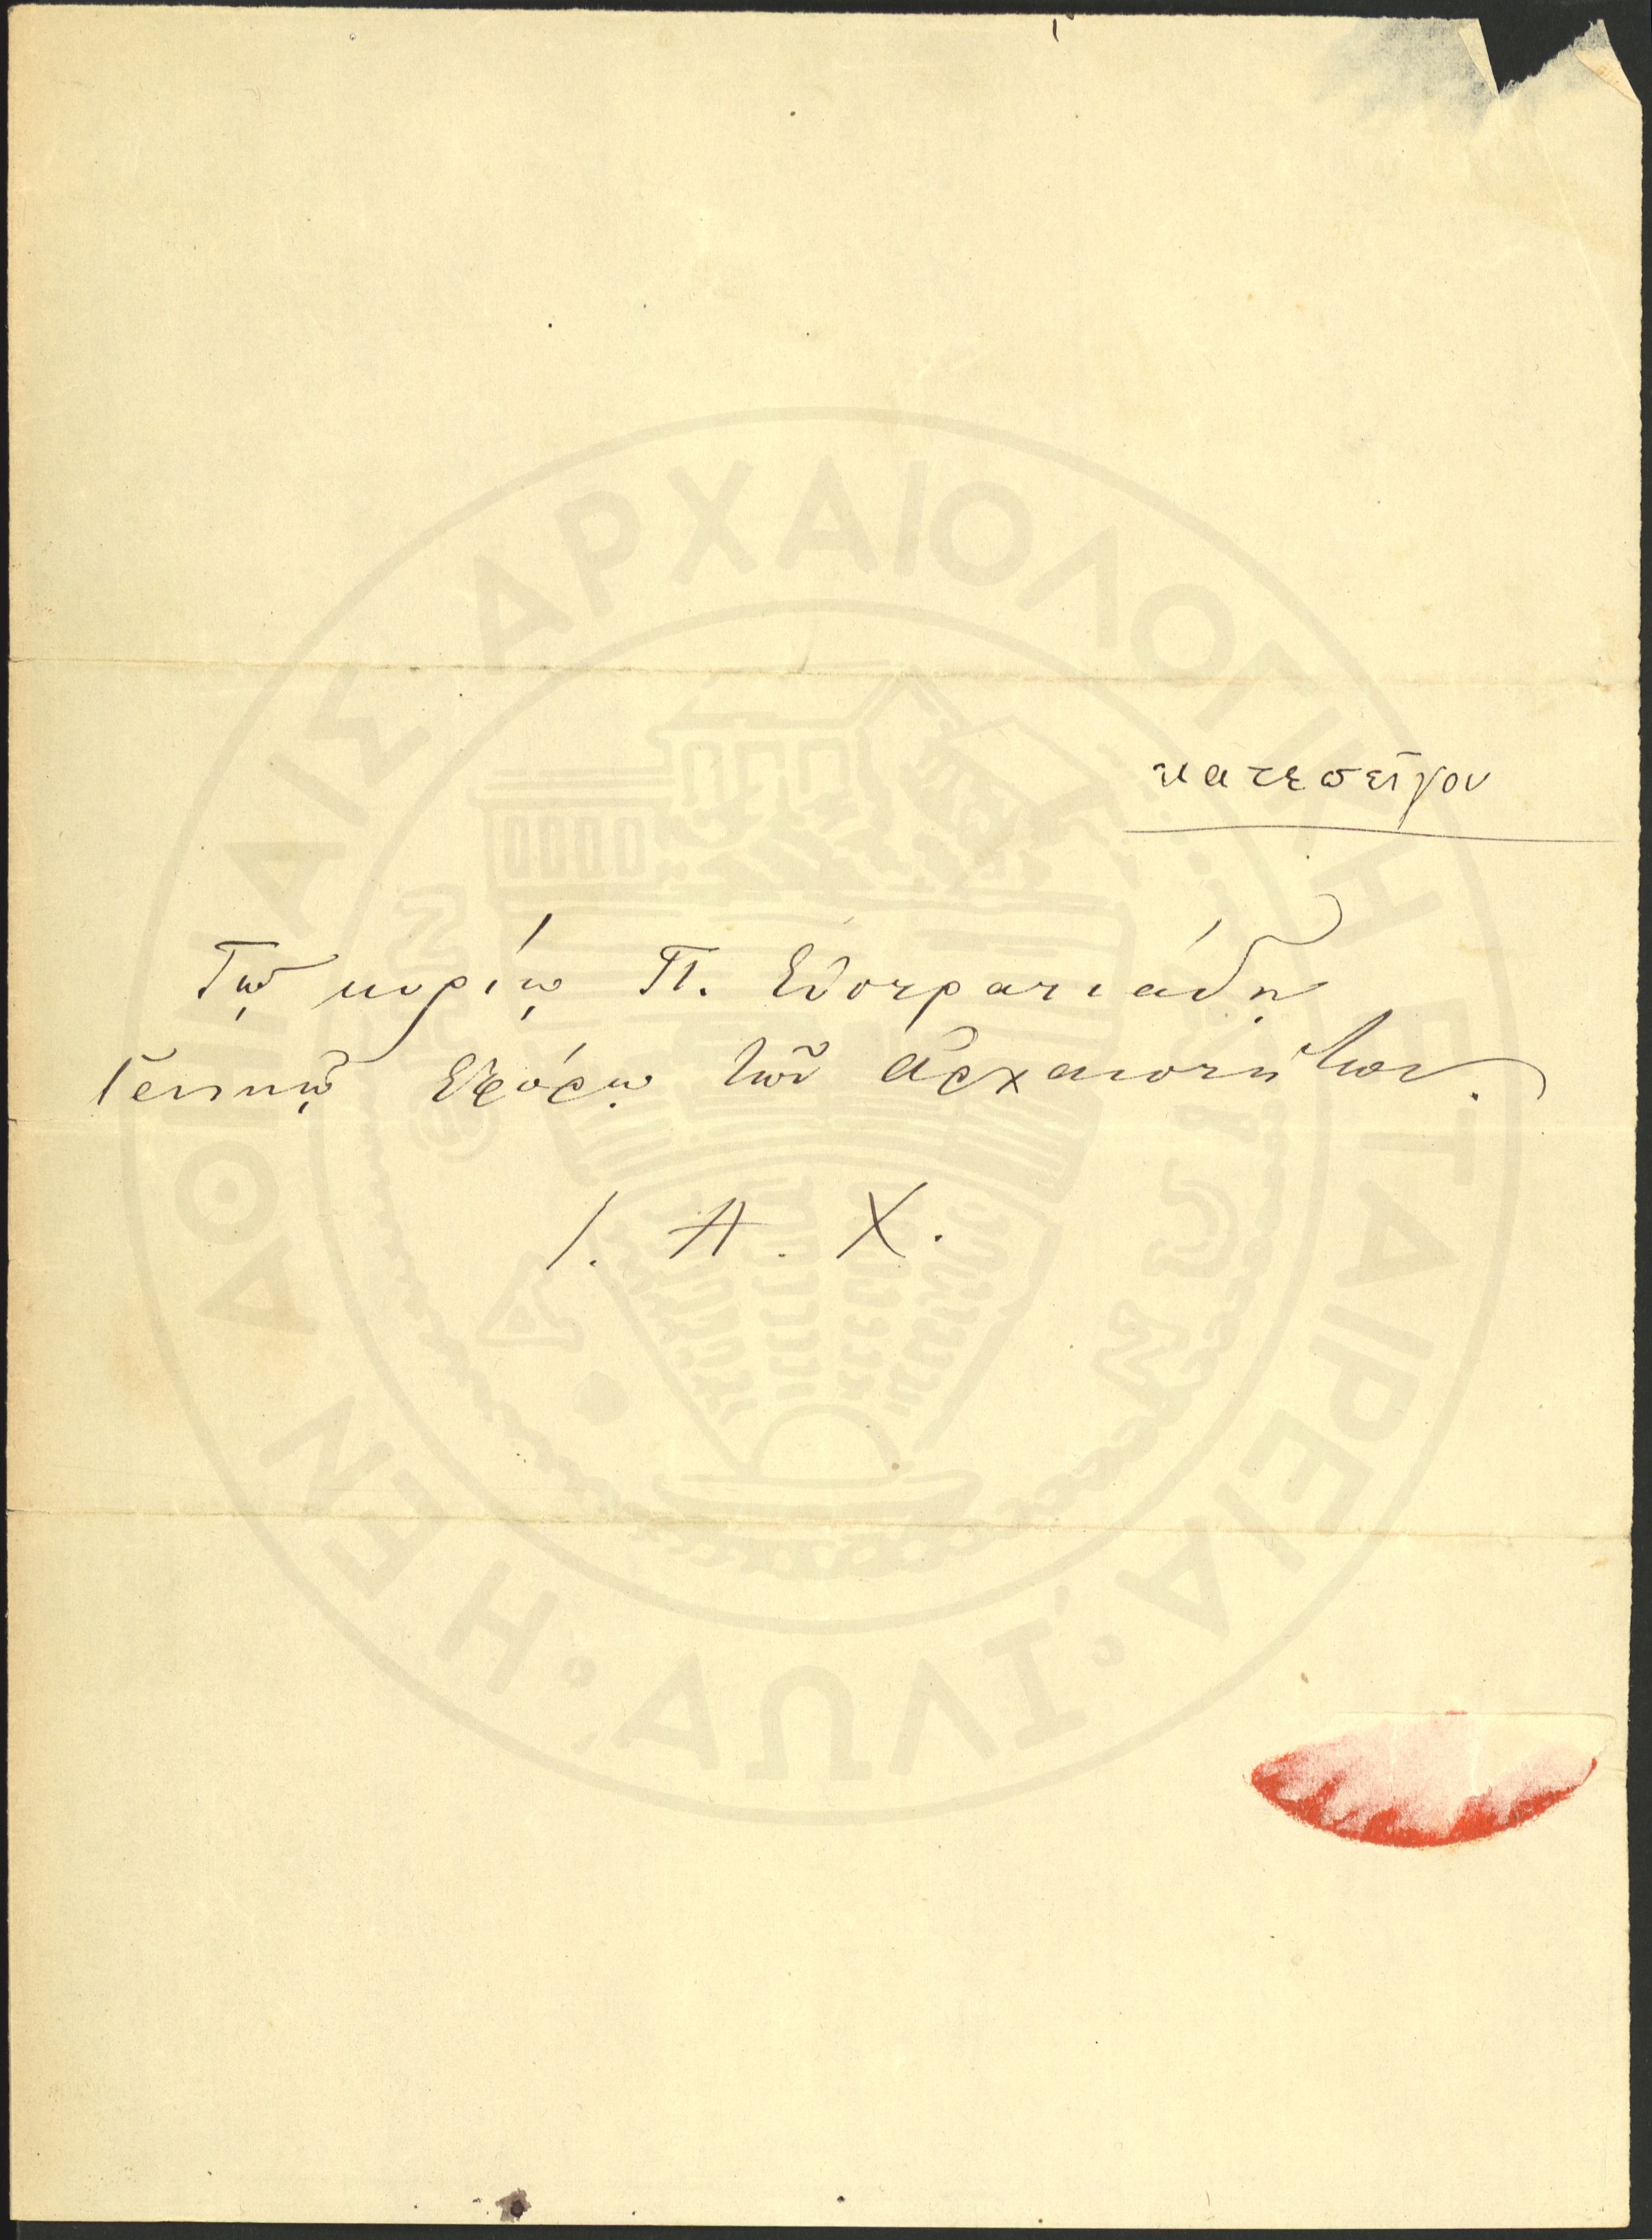 κατεπεῖγον
Τῷ κυρίῳ Π. Εὐστρατιάδῃ
Γενικῷ Ἐφόρῳ τῶν ἀρχαιοτήτων.
Ι. Α. Χ.
Η ΕΝ ΑΘΗΝΑΙΣ ΑΡΧΑΙΟΛΟΓΙΚΗ ΕΤΑΙΡΕΙΑ
ΑΩΛΖ